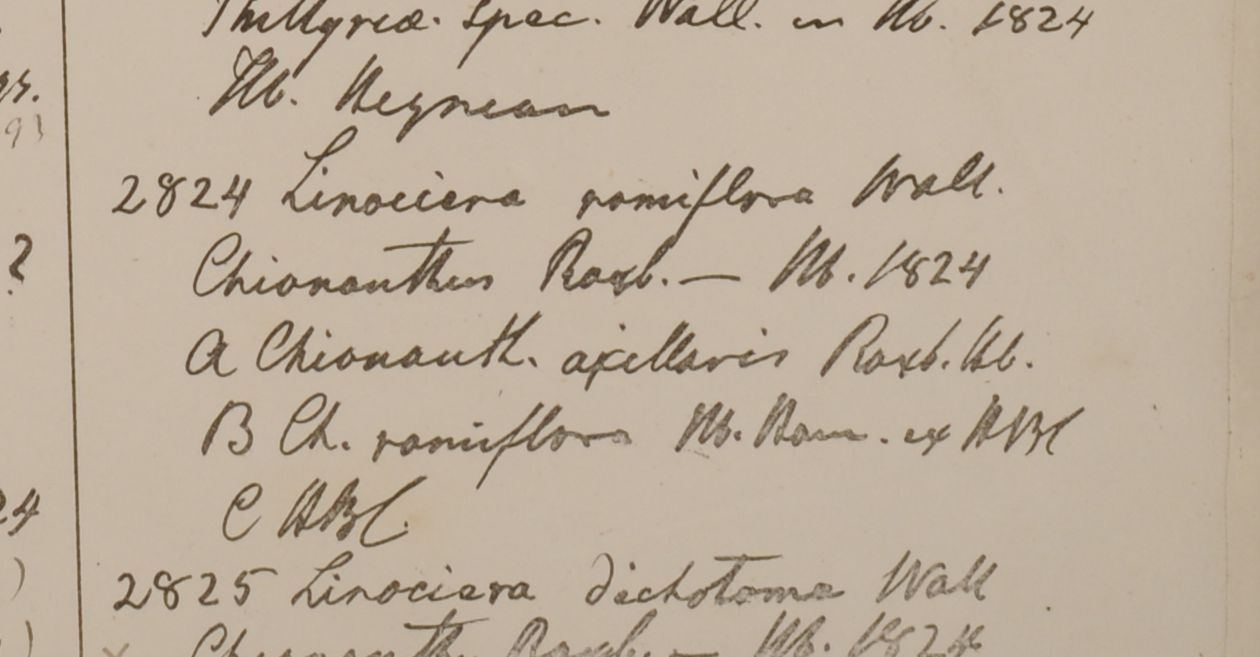 Phillyrea. Spec. Wall. in Hb. 1824
Hb. Heynean
2824 Linociera ramiflora Wall.
Chionanthus Roxb. — Hb. 1824
A Chionanth. axillaris Roxb. Hb.
B Ch. ramiflora Hb. Ham. ex HBC
C HBC.
2825 Linociera dichotoma Wall
Chionanth Roxb. — Hb. 1824
?
24